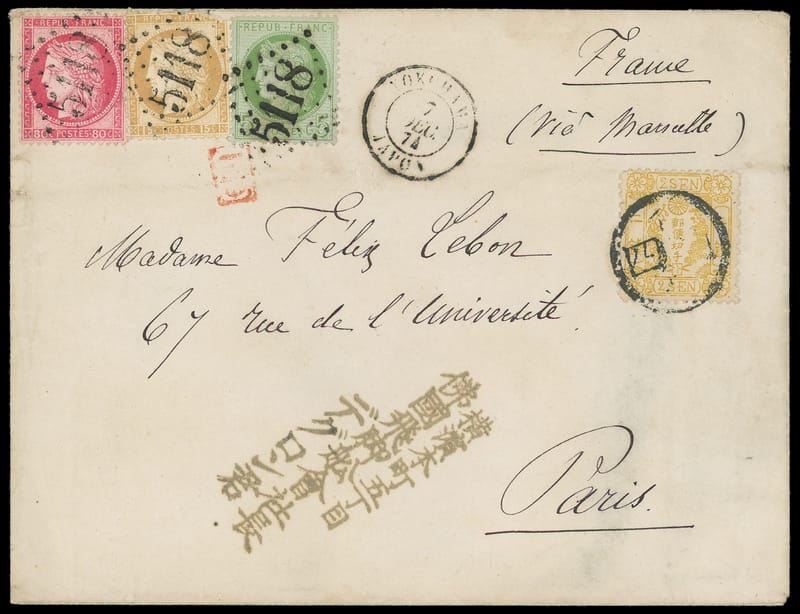 REPUB. FRANC.
80C POSTES 80C
5118
REPUB. FRANC.
15C POSTES 15C
5118
REPUB. FRANC.
5118
YOKOHAMA
7
DEC.
74
JAPON
PD
France
(Viâ Marseille)
2 SEN
郵便切手
(2 SEN)
Madame Félix Lebon
67 rue de l'Université.
Paris.
横濱本町五丁目
佛國飛脚舩會社長
デクロン君